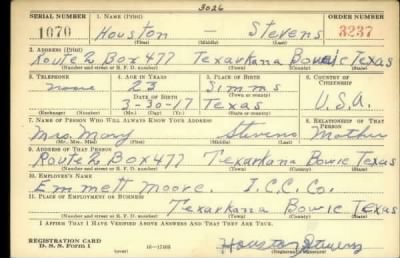 3026
SERIAL NUMBER 1. NAME (Print) ORDER NUMBER
1070 Houston — Stevens 3237
(First) (Middle) (Last)
2. ADDRESS (Print)
Route 2 Box 477 Texarkana Bowie Texas
(Number and street or R. F. D. number) (Town) (County) (State)
3. TELEPHONE 4. AGE IN YEARS 5. PLACE OF BIRTH 6. COUNTRY OF CITIZENSHIP
none 23 Simms
DATE OF BIRTH (Town or county)
3-30-17 Texas U.S.A.
(Exchange) (Number) (Mo.) (Day) (Yr.) (State or country)
7. NAME OF PERSON WHO WILL ALWAYS KNOW YOUR ADDRESS 8. RELATIONSHIP OF THAT PERSON
Mrs. Mary Stevens Mother
(Mr., Mrs., Miss) (First) (Middle) (Last)
9. ADDRESS OF THAT PERSON
Route 2 Box 477 Texarkana Bowie Texas
(Number and street or R. F. D. number) (Town) (County) (State)
10. EMPLOYER'S NAME
Emmett Moore. I.C.C. Co.
11. PLACE OF EMPLOYMENT OR BUSINESS
Texarkana Bowie Texas
(Number and street or R. F. D. number) (Town) (County) (State)
I AFFIRM THAT I HAVE VERIFIED ABOVE ANSWERS AND THAT THEY ARE TRUE.
REGISTRATION CARD
D. S. S. Form 1 16—17105 Houston Stevens
(Registrant's signature)